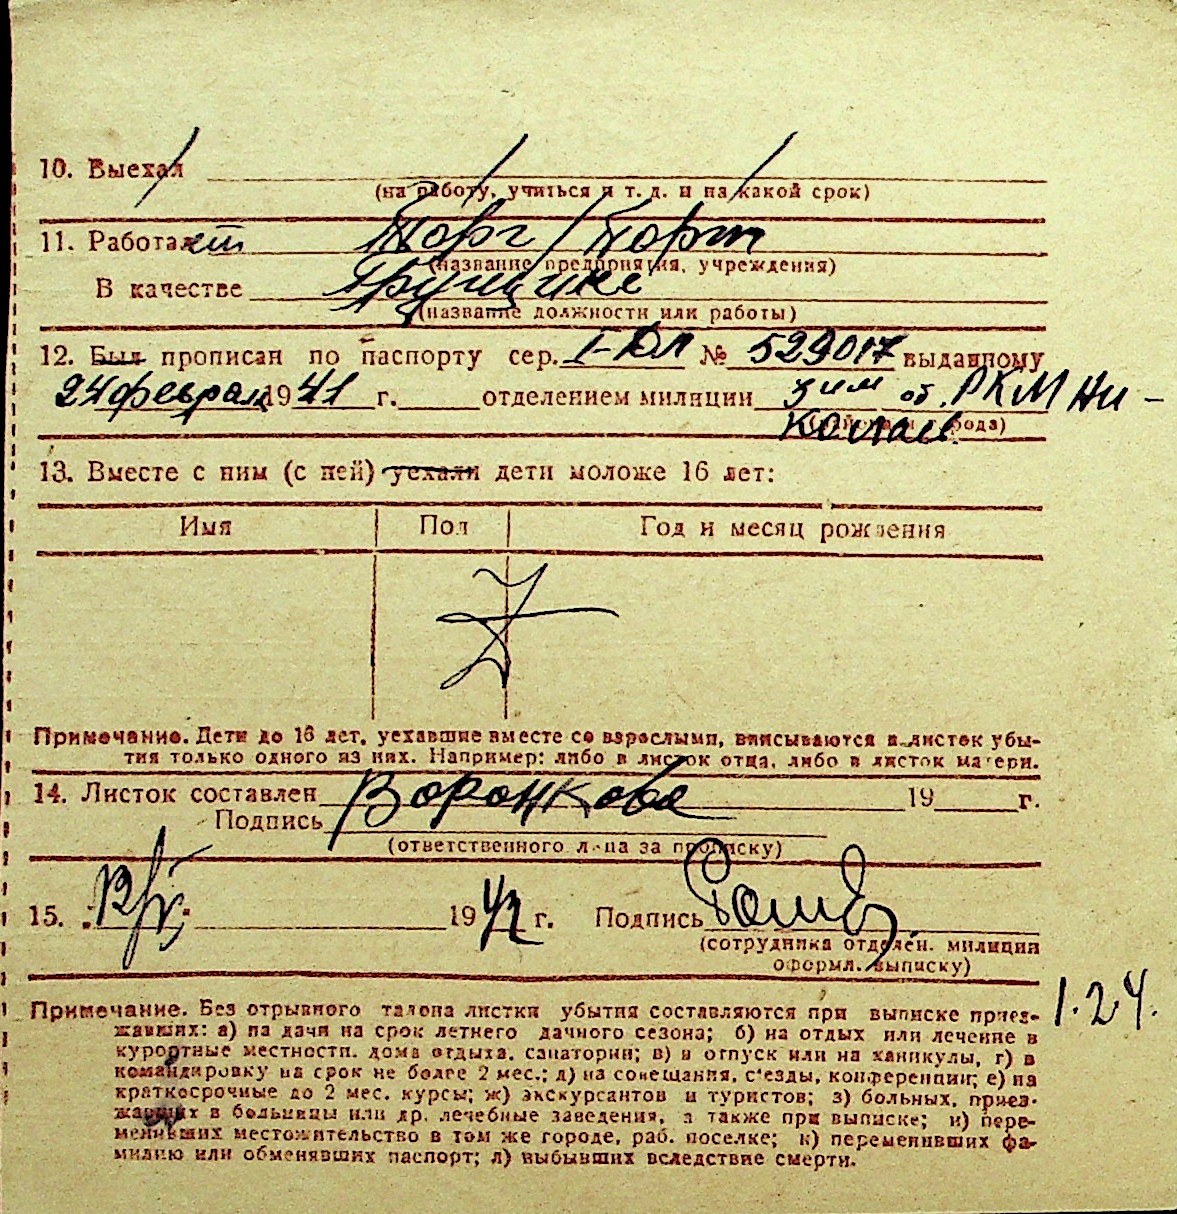 10. Выехал
(на работу, учиться и т. д. и на какой срок)
11. Работает Торг / Порт
(название предприятия, учреждения)
В качестве Грузчика
(название должности или работы)
12. Был прописан по паспорту сер. I-ЮЛ № 529017 выданному
24 февраля 1941 г. отделением милиции 3им об. РКМ Ни-
колаев
13. Вместе с ним (с ней) уехали дети моложе 16 лет:
Имя Пол Год и месяц рождения
Z
Примечание. Дети до 16 лет, уехавшие вместе со взрослыми, вписываются в листок убы-
тия только одного из них. Например: либо в листок отца, либо в листок матери.
14. Листок составлен Воронкова 19 г.
Подпись
(ответственного лица за прописку)
15. 1942 г. Подпись
(сотрудника отделен. милиции
оформл. выписку)
1.24.
Примечание. Без отрывного талона листки убытия составляются при выписке приез-
жавших: а) на дачи на срок летнего дачного сезона; б) на отдых или лечение в
курортные местности, дома отдыха, санатории; в) в отпуск или на каникулы, г) в
командировку на срок не более 2 мес.; д) на совещания, с'езды, конференции; е) на
краткосрочные до 2 мес. курсы; ж) экскурсантов и туристов; з) больных, приез-
жавших в больницы или др. лечебные заведения, а также при выписке; и) пере-
менивших местожительство в том же городе, раб. поселке; к) переменивших фа-
милию или обменявших паспорт; л) выбывших вследствие смерти.